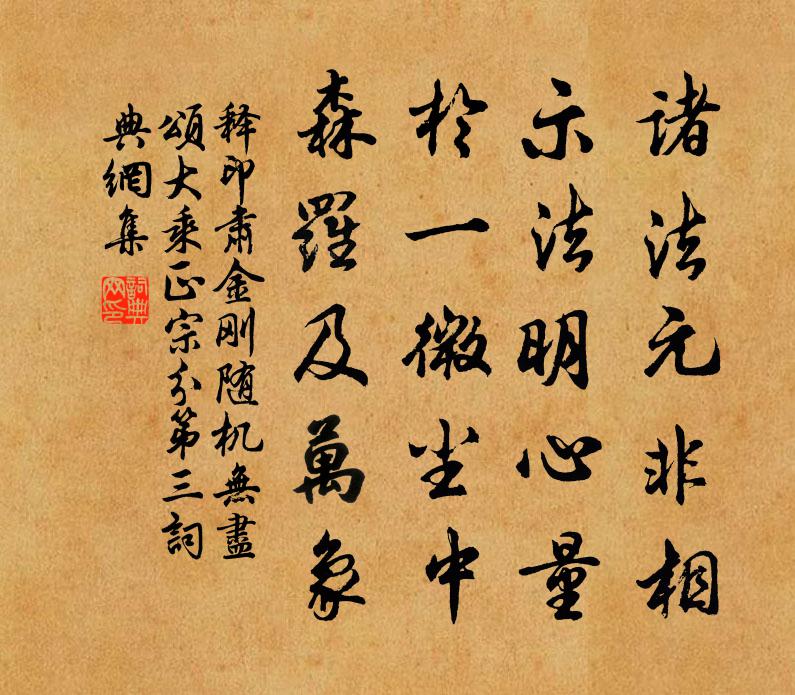 諸法元非相
示法明心量
於一微尘中
森羅及萬象
释印肃金刚随机無盡
頌大乘正宗分第三詞
典網集
詞典网印